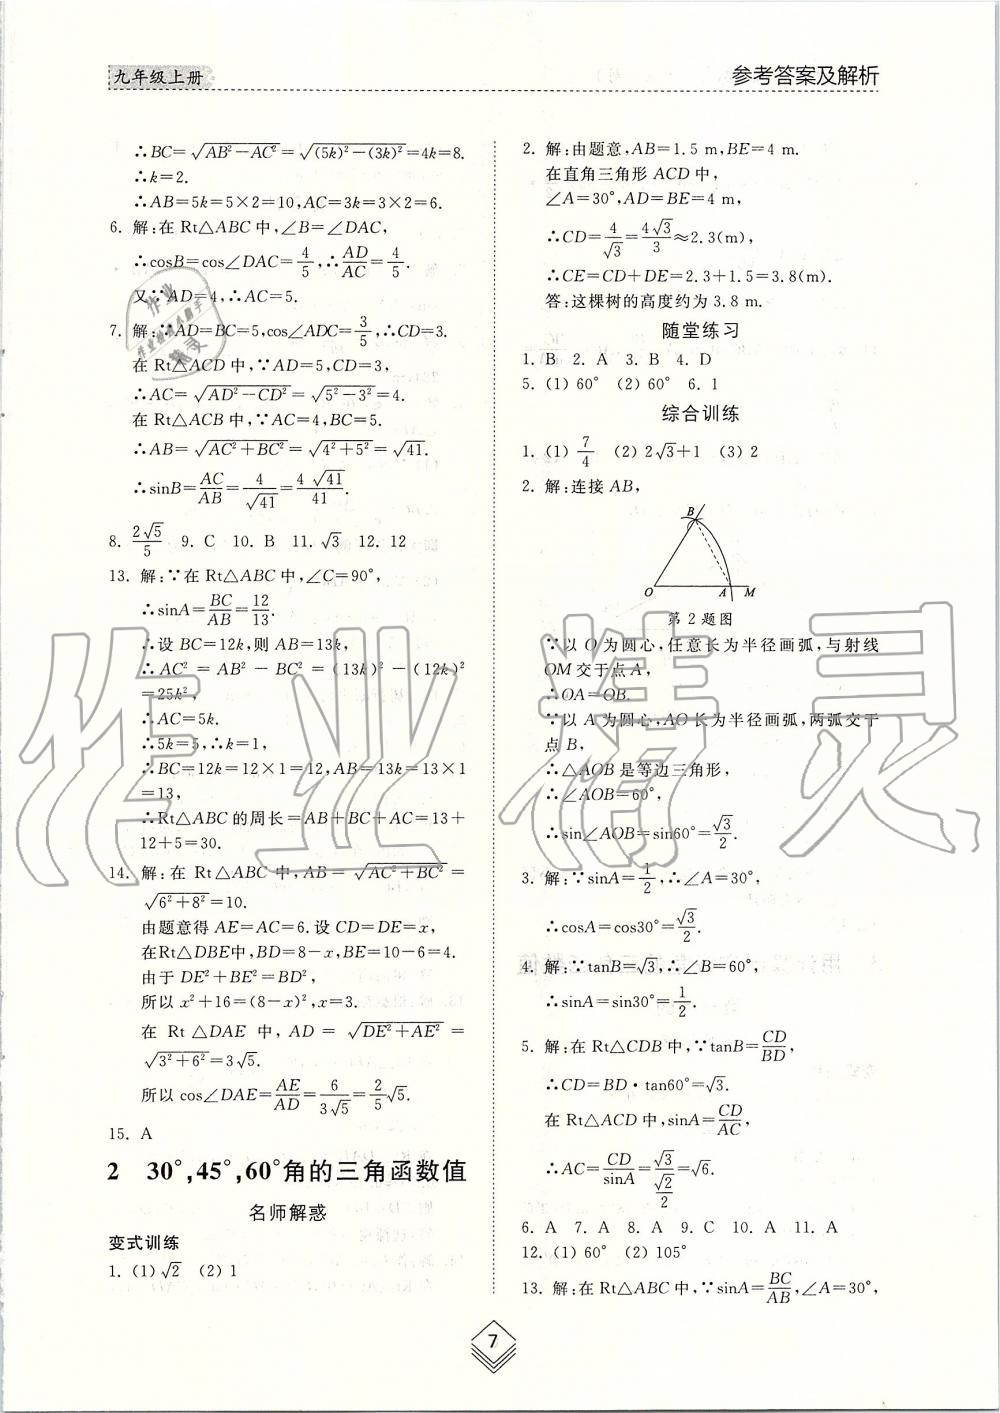 九年级上册
参考答案及解析
∴BC=√(AB²-AC²)=√((5k)²-(3k)²)=4k=8.
∴k=2.
∴AB=5k=5×2=10,AC=3k=3×2=6.
6. 解:在 Rt△ABC 中,∠B=∠DAC,
∴cosB=cos∠DAC=4/5,∴AD/AC=4/5.
又∵AD=4,∴AC=5.
7. 解:∵AD=BC=5,cos∠ADC=3/5,∴CD=3.
在 Rt△ACD 中,∵AD=5,CD=3,
∴AC=√(AD²-CD²)=√(5²-3²)=4.
在 Rt△ACB 中,∵AC=4,BC=5.
∴AB=√(AC²+BC²)=√(4²+5²)=√41.
∴sinB=AC/AB=4/√41=4√41/41.
8. 2√5/5 9. C 10. B 11. √3 12. 12
13. 解:∵在 Rt△ABC 中,∠C=90°,
∴sinA=BC/AB=12/13.
∴设 BC=12k,则 AB=13k,
∴AC²=AB²-BC²=(13k)²-(12k)²
=25k²,
∴AC=5k.
∴5k=5,∴k=1,
∴BC=12k=12×1=12,AB=13k=13×1
=13,
∴Rt△ABC 的周长=AB+BC+AC=13+
12+5=30.
14. 解:在 Rt△ABC 中,AB=√(AC²+BC²)=
√(6²+8²)=10.
由题意得 AE=AC=6.设 CD=DE=x,
在Rt△DBE中,BD=8-x,BE=10-6=4.
由于 DE²+BE²=BD²,
所以 x²+16=(8-x)²,x=3.
在 Rt△DAE 中,AD=√(DE²+AE²)=
√(3²+6²)=3√5.
所以 cos∠DAE=AE/AD=6/3√5=2/5√5.
15. A
2 30°,45°,60°角的三角函数值
名师解惑
变式训练
1. (1)√2 (2)1
2. 解:由题意,AB=1.5 m,BE=4 m.
在直角三角形 ACD 中,
∠A=30°,AD=BE=4 m,
∴CD=4/√3=4√3/3≈2.3(m),
∴CE=CD+DE=2.3+1.5=3.8(m).
答:这棵树的高度约为 3.8 m.
随堂练习
1. B 2. A 3. B 4. D
5. (1)60° (2)60° 6. 1
综合训练
1. (1)7/4 (2)2√3+1 (3)2
2. 解:连接 AB,
B
O A M
第 2 题图
∵以 O 为圆心,任意长为半径画弧,与射线
OM 交于点 A,
∴OA=OB.
∵以 A 为圆心,AO 长为半径画弧,两弧交于
点 B,
∴△AOB 是等边三角形,
∴∠AOB=60°,
∴sin∠AOB=sin60°=√3/2.
3. 解:∵sinA=1/2,∴∠A=30°,
∴cosA=cos30°=√3/2.
4. 解:∵tanB=√3,∴∠B=60°,
∴sinA=sin30°=1/2.
5. 解:在 Rt△CDB 中,∵tanB=CD/BD,
∴CD=BD·tan60°=√3.
在 Rt△ACD 中,sinA=CD/AC,
∴AC=CD/sinA=(√3)/(√2/2)=√6.
6. A 7. A 8. A 9. C 10. A 11. A
12. (1)60° (2)105°
13. 解:在 Rt△ABC 中,∵sinA=BC/AB,∠A=30°,
7
作业精灵